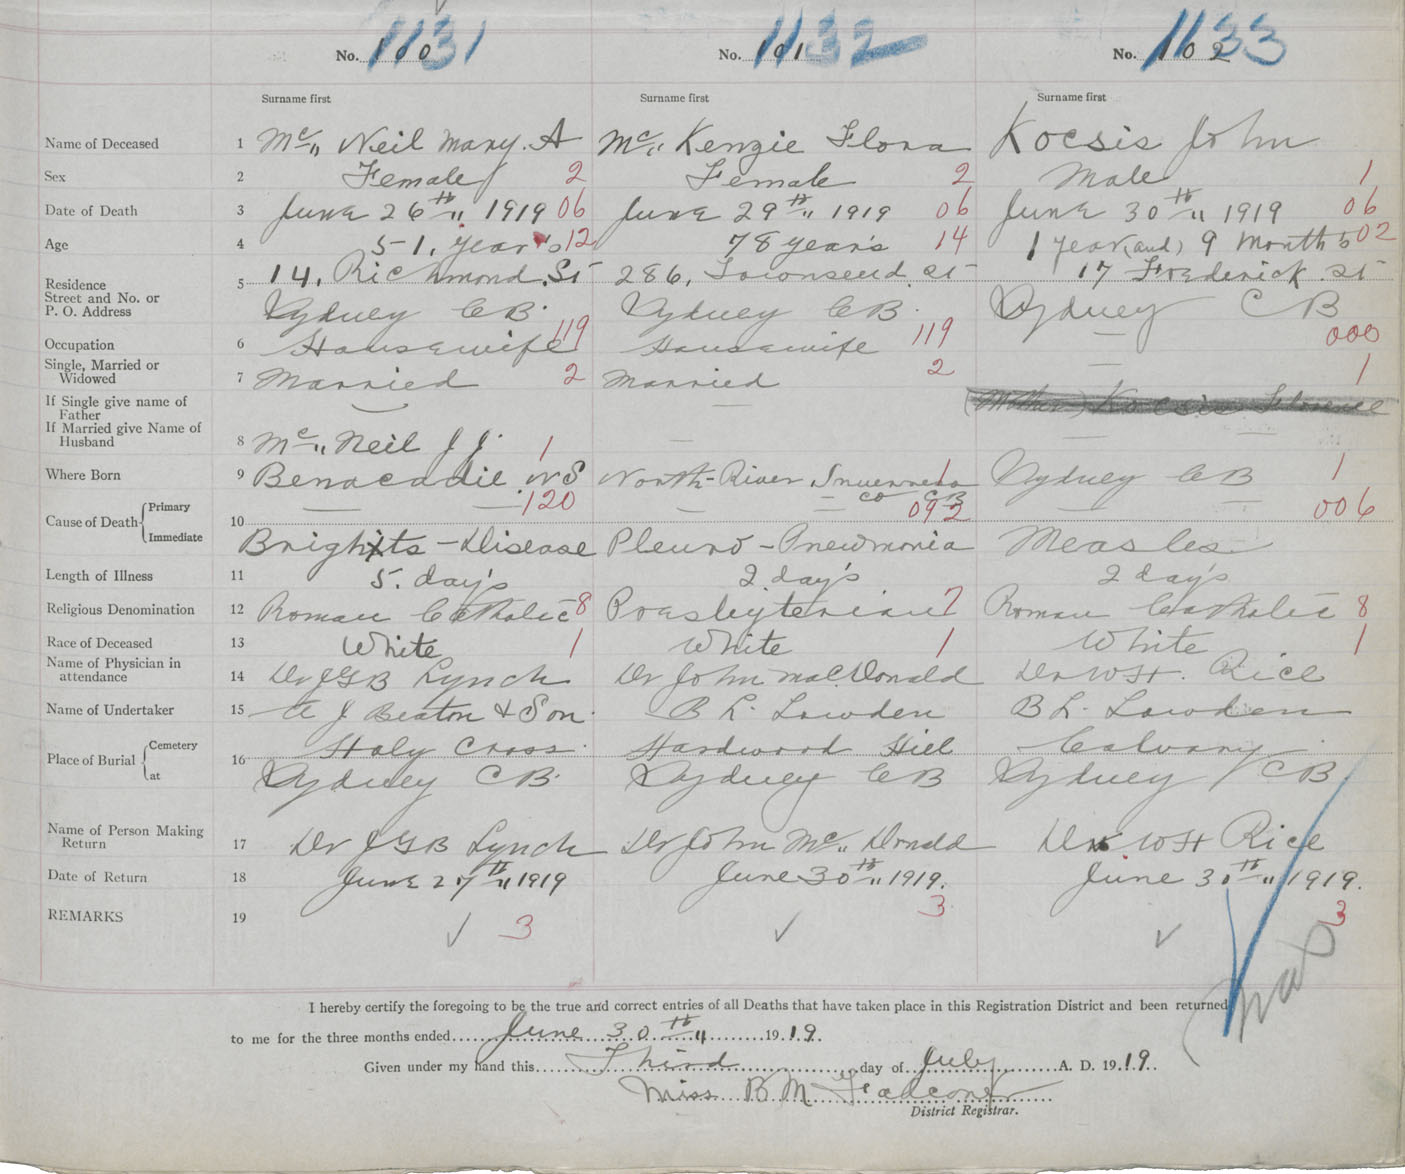 No. 100 1131 No. 101 1132 No. 102 1133
Surname first Surname first Surname first
Name of Deceased 1 Mc„ Neil Mary. A Mc„ Kenzie Flora Kocsis John
Sex 2 Female 2 Female 2 Male 1
Date of Death 3 June 26th„ 1919 06 June 29th„ 1919 06 June 30th„ 1919 06
Age 4 51, year's 12 78 year's 14 1 year (and) 9 Months 02
Residence
Street and No. or
P. O. Address
5 14, Richmond. St 286, Townsend. St 17 Frederick. St
Sydney C B. Sydney C B. Sydney C B
Occupation 6 Housewife 119 Housewife 119 — 000
Single, Married or
Widowed
7 Married 2 Married 2 — 1
If Single give name of
Father
(Mother) Kocsis Florence
If Married give Name of
Husband
8 Mc„ Neil J J. — —
Where Born 9 Benacadie. N S 1 North-River Inverness 1 Sydney C B 1
Co C B
Cause of Death Primary — 120 — 092 — 006
10
Immediate Brights - Disease Pleuro - Pneumonia Measles
Length of Illness 11 5. day's 2 day's 2 day's
Religious Denomination 12 Roman Catholic 8 Presbyterian 7 Roman Catholic 8
Race of Deceased 13 White 1 White 1 White 1
Name of Physician in
attendance
14 Dr J G B Lynch Dr John MacDonald Dr W H. Rice
Name of Undertaker 15 A J Beaton & Son. B L. Lowden B L. Lowden
Place of Burial Cemetery Holy Cross. Hardwood Hill Calvary
16
at Sydney C B. Sydney C B Sydney C B
Name of Person Making
Return
17 Dr J G B Lynch Dr John Mc„ Donald Dr W H Rice
Date of Return 18 June 27th„ 1919 June 30th„ 1919. June 30th„ 1919.
REMARKS 19 ✓ 3 ✓ 3 ✓ 3
I hereby certify the foregoing to be the true and correct entries of all Deaths that have taken place in this Registration District and been returned
to me for the three months ended June 30th„ 1919.
Given under my hand this Third day of July A. D. 1919.
Miss B M Falconer
District Registrar.